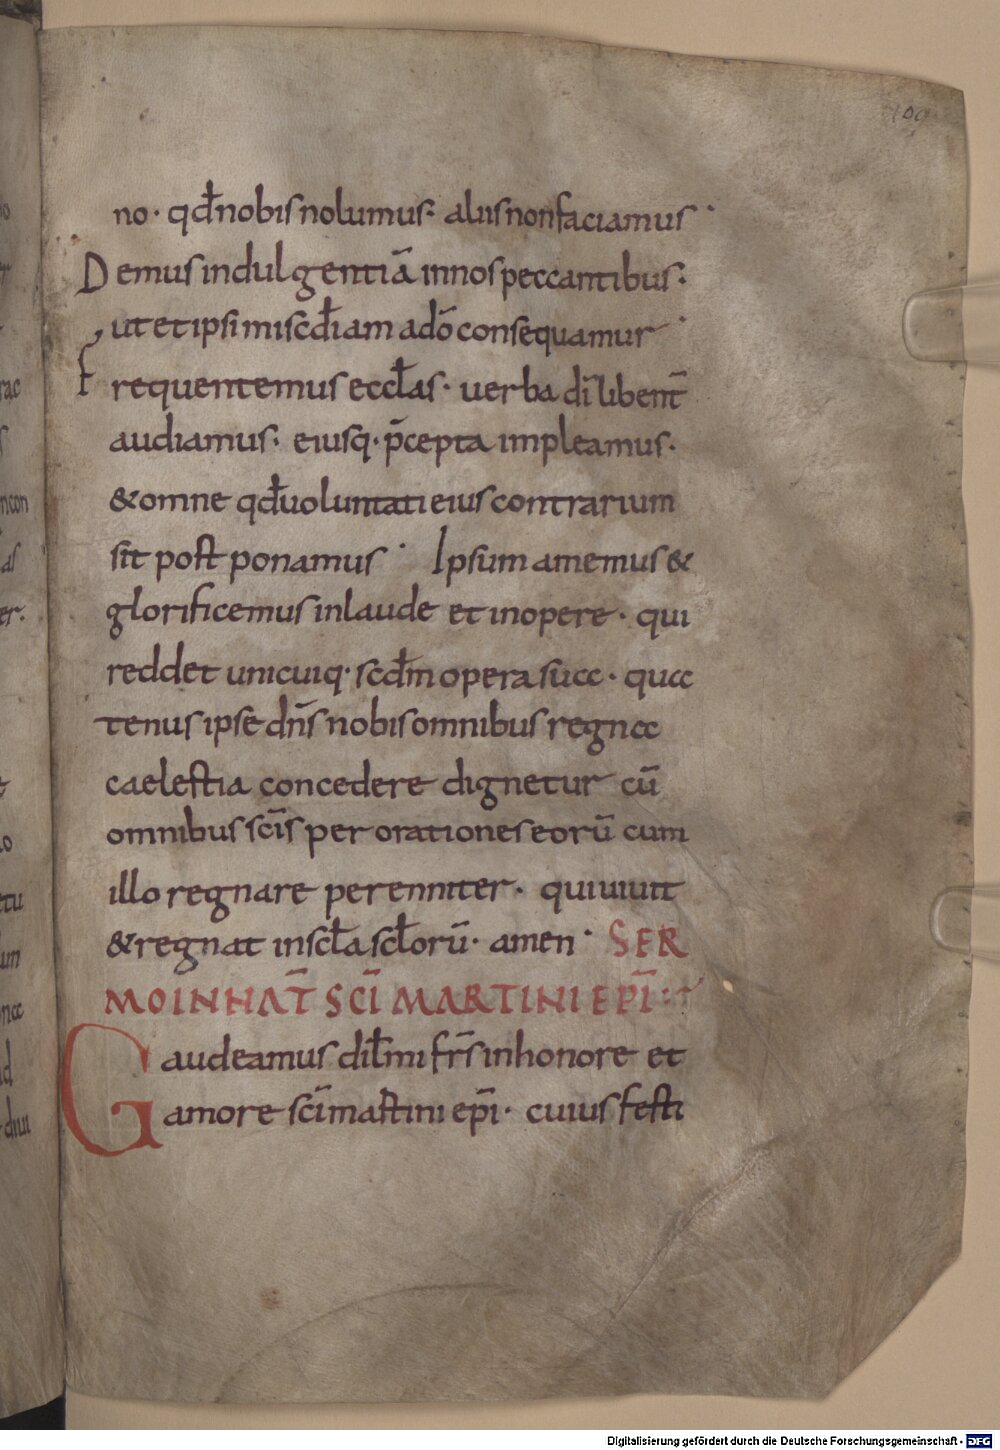 109
no· qđ nobis nolumus· aliis non faciamus·
Demus indulgentiā in nos peccantibus·
ut et ipsi miscđiam a dō consequamur·
Frequentemus eccłas· uerba dī libent̄
audiamus· eiusq· p̄cepta impleamus·
& omne qđ uoluntati eius contrarium
sit post ponamus· Ipsum amemus &
glorificemus in laude et in opere· qui
reddet unicuiq· scđm opera sua· qua
tenus ipse dn̄s nobis omnibus regna
caelestia concedere dignetur cū
omnibus sc̄is per orationes eorū cum
illo regnare perenniter· qui uiuit
& regnat in scła scłorū· amen· SER
MO IN NAT̄ SC̄I MARTINI EP̄I
Gaudeamus dił̄mi fr̄s in honore et
amore sc̄i martini ep̄i· cuius festi
Digitalisierung gefördert durch die Deutsche Forschungsgemeinschaft - DFG